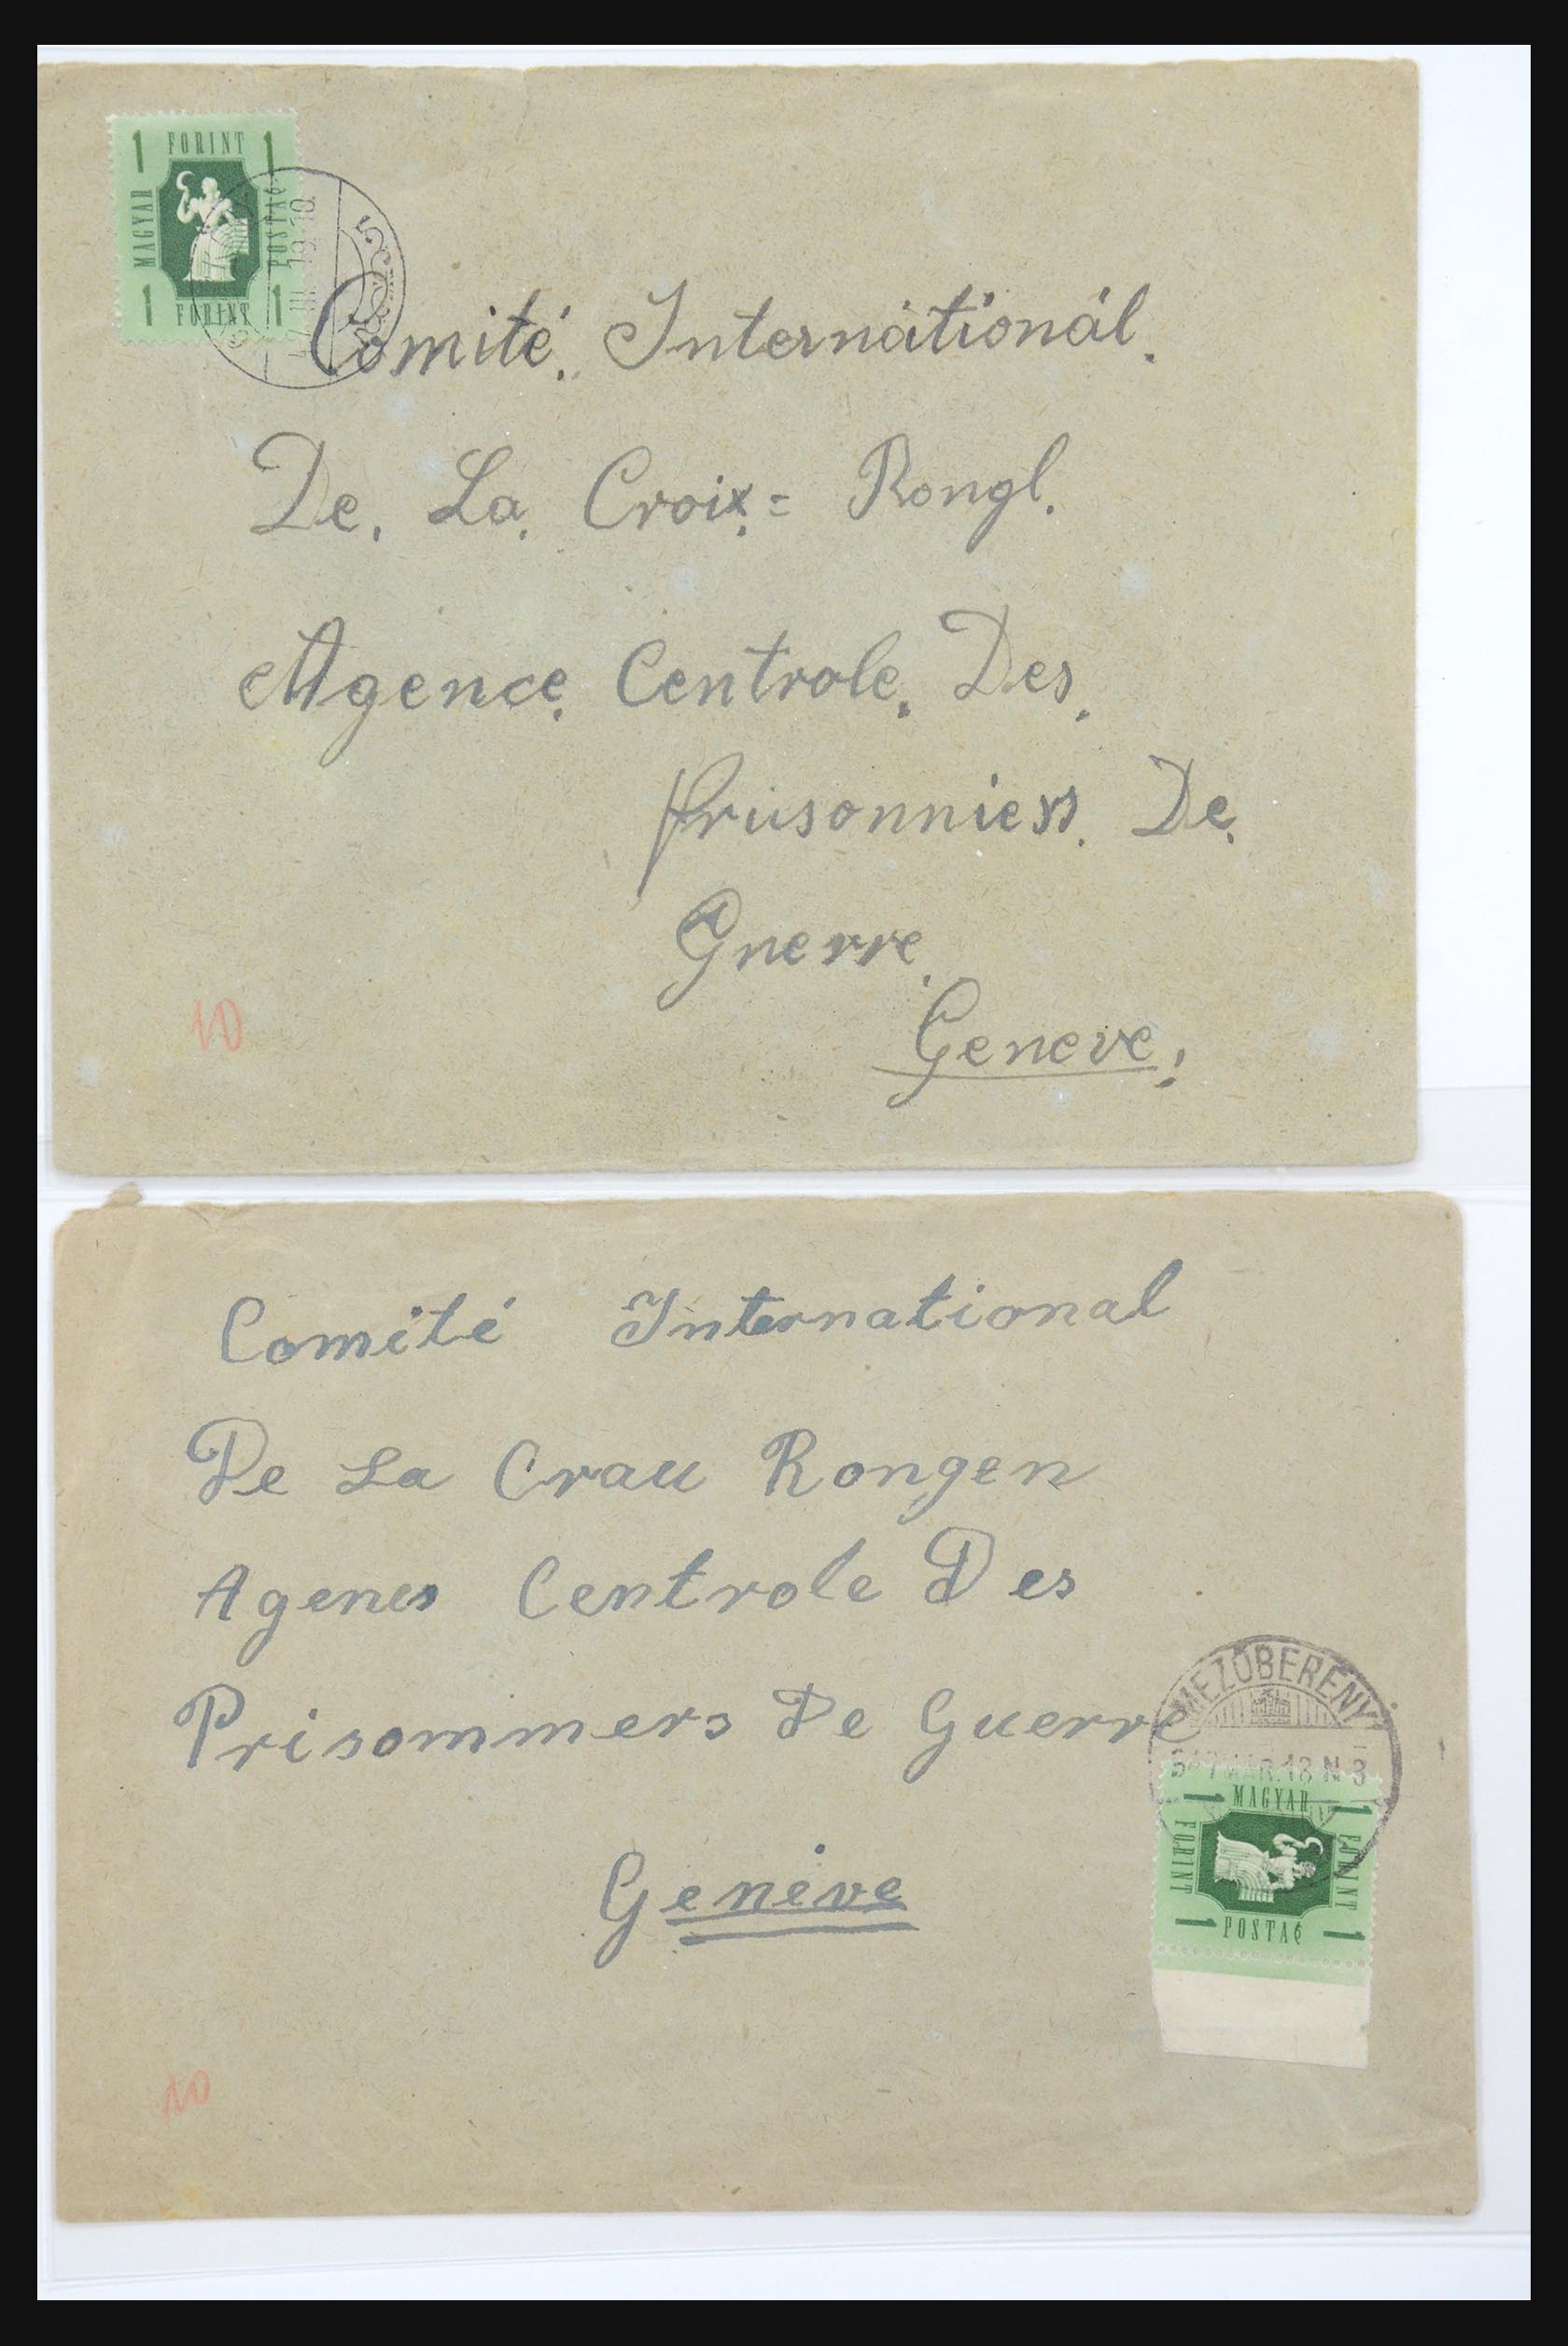 1 FORINT 1
MAGYAR POSTA
1 FORINT 1
47 III 19 10
5
Comité. Internátionál.
De. La. Croix.= Rongl.
Agence. Centrole. Des.
Prüsonniess. De.
Gnerre.
Geneve.
10
Comité International
De La Crau Rongen
Agenes Centrole Des
Prisommers De Guerre
Genéve
MEZŐBERÉNY
947 MÁR. 18 N 3
1 MAGYAR 1
FORINT FORINT
1 POSTA 1
10